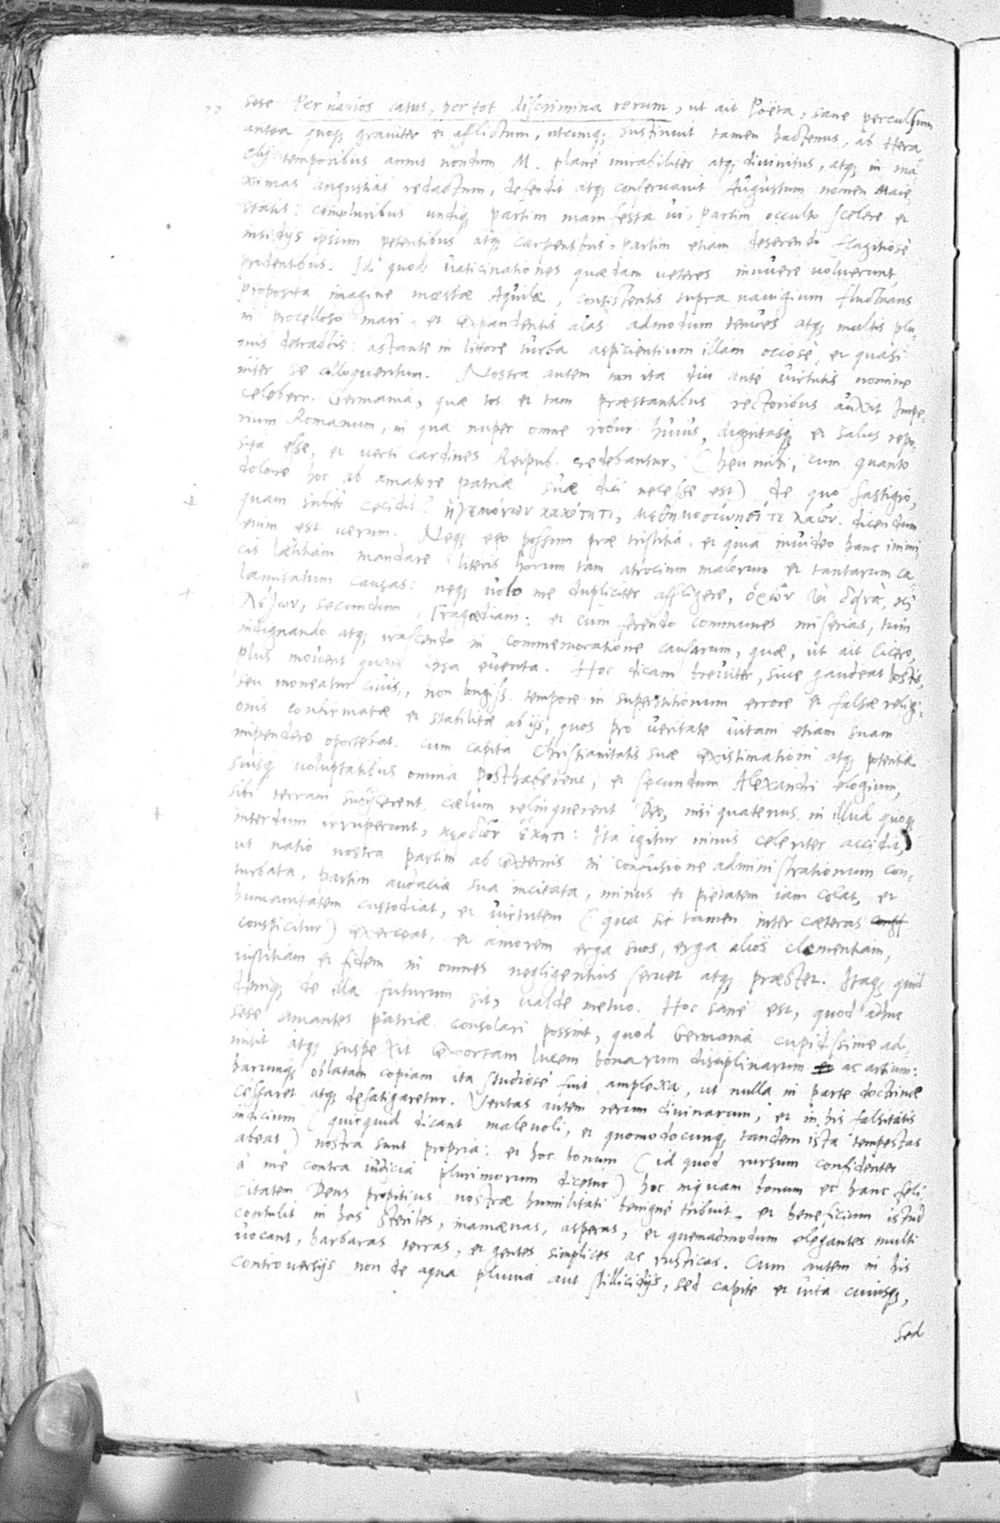 sese Per varios casus, per tot discrimina rerum, ut ait Poëta, sane perculsum
antea quoq; graviter et afflictum, utcunq; sustinuit tamen hactenus, ab Hera
clij temporibus annis nondum M. planè mirabiliter atq; divinitus, atq; in ma
ximas angustias redactum, defendit atq; conservavit Augustum nomen Maie
statis: compluribus undiq; partim manifesta vi, partim occulto scelere et
insidijs ipsum petentibus atq; carpentibus, partim etiam deserendo flagitiosè
prodentibus. Id quod vaticinationes quædam veteres innuere voluerunt
proposita imagine mœstæ Aquilæ, consistentis supra navigium fluctuans
in procelloso mari, et expandentis alas admodum tenues atq; multis plu
mis detractis: astante in littore turba aspicientium illam ociosè, et quasi
inter se colloquentium. Nostra autem non ita diu antè virtutis nomine
celeberr. Germania, quæ tot et tam præstantibus rectoribus auxit Impe
rium Romanum, in qua nuper omne robur huius, dignitasq; et salus repo
sita esse, et verti cardines Reipub. credebantur, (heu mihi, cum quanto
dolore hoc ab amatore patriæ suæ dici necesse est) de quo fastigio,
quam subitò cecidit? ἡγεμόνων κακότητι, μεθημοσύνῃσί τε λαῶν. dicendum
enim est verum. Neq; ego possum præ tristitia, et quia invideo hanc inimi
cis lætitiam mandare literis horum tam atrocium malorum et tantarum ca
lamitatum causas: neq; volo me dupliciter affligere,
λέγων, secundum Tragœdiam: et cum ferendo communes miserias, tum
indignando atq; irascendo in commemoratione causarum, quæ, ut ait Cicero,
plus movent quam ipsa eventa. Hoc dicam breviter, sive gaudeat hostis,
seu moneatur civis, non longiss. tempore in superstitionum errore et falsæ religi
onis confirmatæ et stabilitæ ab ijs, quos pro veritate vitam etiam suam
impendere oportebat. cum capita Christianitatis suæ existimationi atq; potentiæ
suisq; voluptatibus omnia posthaberent, et secundum Alexandri elogium,
sibi terram subijcerent, cælum relinquerent Deo, nisi quatenus in illud quoq;
interdum irruperunt, κερδῶν ἕκητι: Ita igitur minus celeriter accidit,
ut natio nostra partim ab externis in confusione administrationum con
turbata, partim audacia sua incitata, minus et pietatem iam colat, et
humanitatem custodiat, et virtutem (qua sic tamen inter cæteras
conspicitur) exerceat, et amorem erga suos, erga alios clementiam,
iustitiam et fidem in omnes negligentius servet atq; præstet. Itaq; quid
deniq; de illa futurum sit, valde metuo. Hoc sanè est, quod adhuc
sese amantes patriæ consolari possint, quod Germania cupidissime ad
misit atq; suspexit exortam lucem bonarum disciplinarum ac artium:
harumq; oblatam copiam ita studiosè fuit amplexa, ut nulla in parte doctrinæ
cessaret atq; defatigaretur. Veritas autem rerum divinarum, et in his falsitatis
indicium (quicquid dicant malevoli, et quomodocunq; tandem ista tempestas
abeat) nostra sunt propria: et hoc bonum (id quod rursum confidenter
à me contra iudicia plurimorum dicetur) hoc inquam bonum et hanc feli
citatem Deus propitius nostræ humilitati benignè tribuit, et beneficium istud
contulit in has steriles, inamœnas, asperas, et quemadmodum elegantes multi
vocant, barbaras terras, et gentes simplices ac rusticas. Cum autem in his
controversijs non de aqua pluvia aut stillicidijs, sed capite et vita cuiusq;,
sed